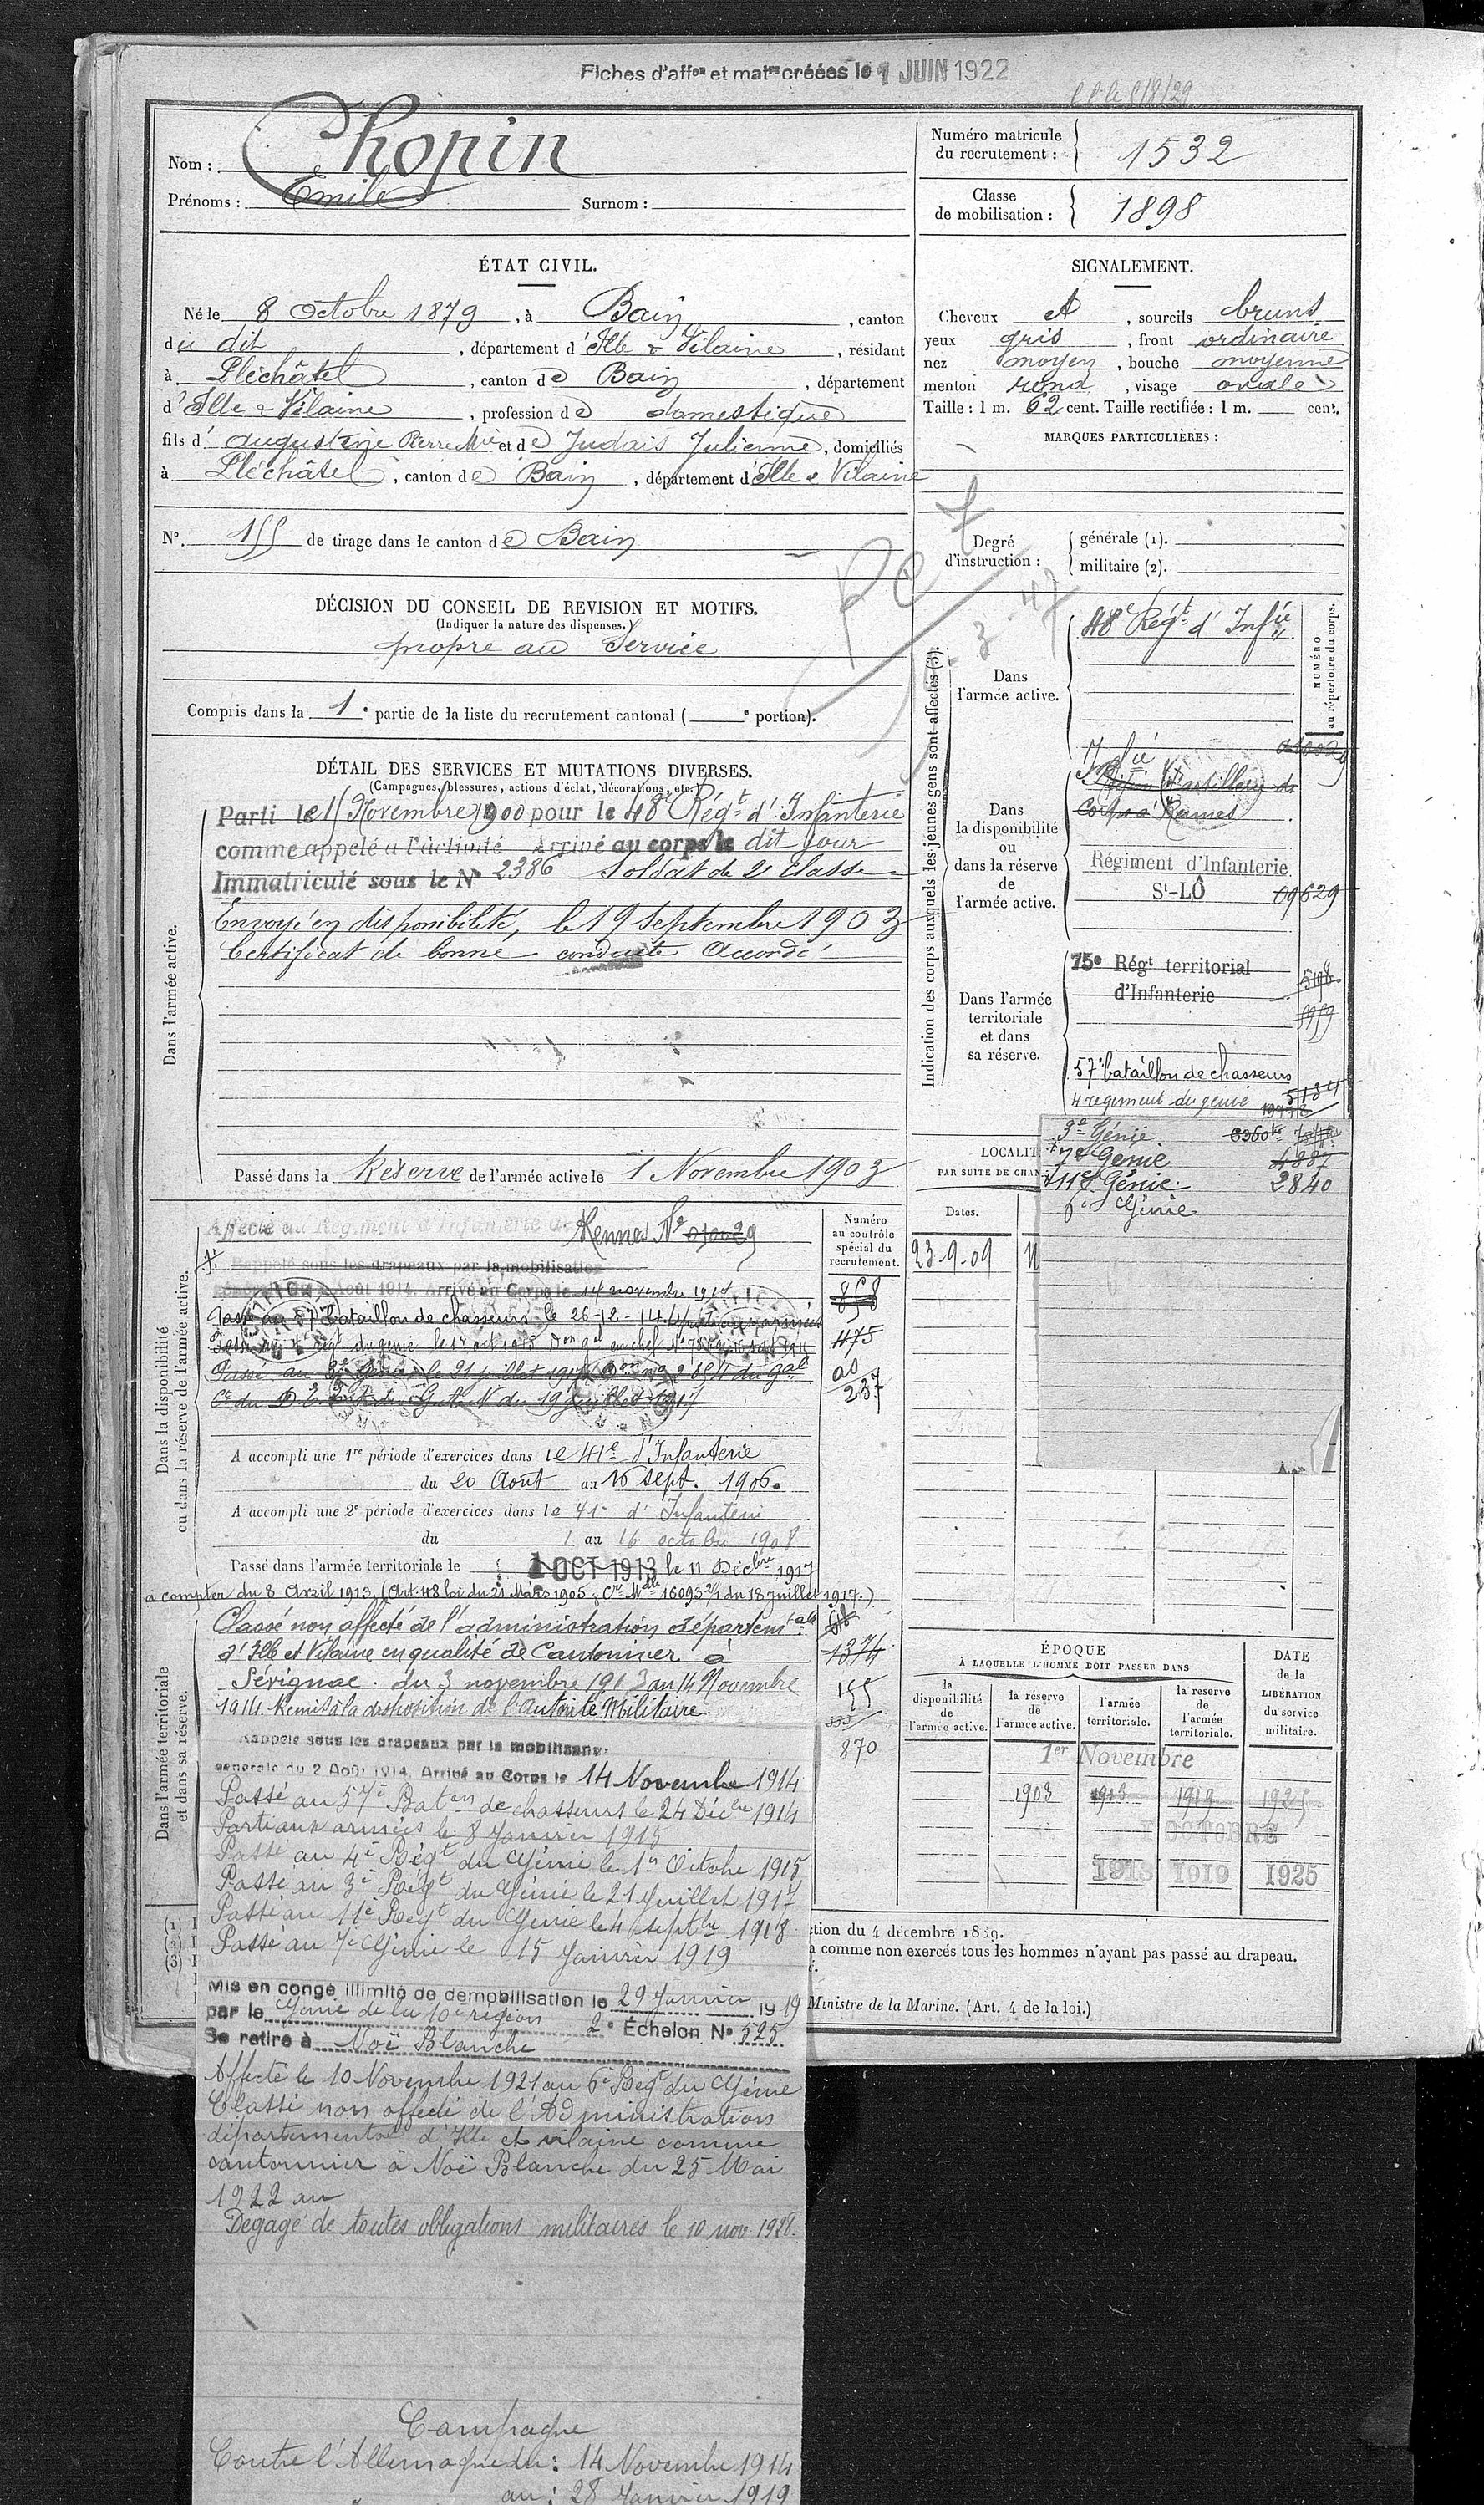 Fiches d'affon et matres créées le 1 JUIN 1922
Nom : Chopin
Prénoms : Emile Surnom :
Numéro matricule du recrutement : 1532
Classe de mobilisation : 1898
ÉTAT CIVIL.
Né le 8 Octobre 1879, à Bain, canton
du dit, département d'Ille & Vilaine, résidant
à Pléchâtel, canton de Bain, département
d'Ille & Vilaine, profession de domestique
fils d'augustine Pierre Mie et de Judais Julienne, domiciliés
à Pléchâtel, canton de Bain, département d'Ille & Vilaine
N° 155 de tirage dans le canton de Bain
SIGNALEMENT.
Cheveux et, sourcils bruns
yeux gris, front ordinaire
nez moyen, bouche moyenne
menton rond, visage ovale
Taille : 1 m. 62 cent. Taille rectifiée : 1 m. cent.
MARQUES PARTICULIÈRES :
Degré d'instruction :
générale (1).
militaire (2).
DÉCISION DU CONSEIL DE REVISION ET MOTIFS.
(Indiquer la nature des dispenses.)
propre au Service
Compris dans la 1e partie de la liste du recrutement cantonal ( e portion).
DÉTAIL DES SERVICES ET MUTATIONS DIVERSES.
(Campagnes, blessures, actions d'éclat, décorations, etc.)
Dans l'armée active.
Parti le 15 Novembre 1900 pour le 48e Régt d'Infanterie
comme appelé à l'activité Arrivé au corps le dit jour
Immatriculé sous le N° 2386 Soldat de 2e Classe
Envoyé en disponibilité, le 19 Septembre 1903
Certificat de bonne conduite Accordé
Passé dans la Réserve de l'armée active le 1 Novembre 1903
Indication des corps auxquels les jeunes gens sont affectés (3).
NUMÉRO au répertoire du corps.
Dans l'armée active.
48e Régt d'Infie
Dans la disponibilité ou dans la réserve de l'armée active.
Infie
d'artillerie de
Corps à Rennes
Régiment d'Infanterie
St-LÔ 09629
Dans l'armée territoriale et dans sa réserve.
75e Régt territorial
d'Infanterie
57e bataillon de chasseurs
4 régiment du génie
3e Génie
7e Génie 4887
11e Génie 2840
6e Génie
LOCALIT
PAR SUITE DE CHAN
Dates.
23-9-09
Dans la disponibilité ou dans la réserve de l'armée active.
Numéro au contrôle spécial du recrutement.
Affecté au Régiment d'Infanterie de Rennes N° 010029
Rappelé sous les drapeaux par la mobilisation
générale Août 1914. Arrivé au Corps le 14 novembre 1914
Passé au 57e bataillon de chasseurs le 26-12-14
868
475
237
A accompli une 1re période d'exercices dans le 41e d'Infanterie
du 20 Août au 16 sept. 1906.
A accompli une 2e période d'exercices dans le 41e d'Infanterie
du 1 au 16 octobre 1908
Passé dans l'armée territoriale le 1 OCT 1913 le 11 Décbre 1917
à compter du 8 Avril 1913. (Art. 48 loi du 21 Mars 1905 & Cre Mlle 16093 2/1 du 18 Juillet 1917.)
Dans l'armée territoriale et dans sa réserve.
Classé non affecté de l'administration départemtale
d'Ille et Vilaine en qualité de Cantonnier à
Sévignac. du 3 novembre 1913 au 14 Novembre
1914. Remis à la disposition de l'autorité Militaire.
1374
155
870
Rappelé sous les drapeaux par la mobilisation
générale du 2 Août 1914. Arrivé au Corps le 14 Novembre 1914
Passé au 57e Baton de chasseurs le 24 Décbre 1914
Parti aux armées le 8 Janvier 1915
Passé au 4e Régt du Génie le 1er Octobre 1915
Passé au 3e Régt du Génie le 21 Juillet 1917
Passé au 11e Régt du Génie le 4 Septbre 1918
Passé au 7e Génie le 15 Janvier 1919
Mis en congé illimité de démobilisation le 29 Janvier 1919
par le Génie de la 10e région 2e Échelon N° 525
Se retire à Noë Blanche
Affecté le 10 Novembre 1921 au 6e Régt du Génie
Classé non affecté de l'Administration
départementale d'Ille et vilaine comme
cantonnier à Noë Blanche du 25 Mai
1922 au
Dégagé de toutes obligations militaires le 10 nov. 1928.
Campagne
Contre l'Allemagne du : 14 Novembre 1914
au : 28 Janvier 1919
ÉPOQUE
À LAQUELLE L'HOMME DOIT PASSER DANS
la disponibilité de l'armée active.
la réserve de l'armée active.
l'armée territoriale.
la réserve de l'armée territoriale.
DATE de la LIBÉRATION du service militaire.
1er Novembre
1903 1913 1919 1925
1 OCTOBRE
1918 1919 1925
ction du 4 décembre 1889.
a comme non exercés tous les hommes n'ayant pas passé au drapeau.
Ministre de la Marine. (Art. 4 de la loi.)